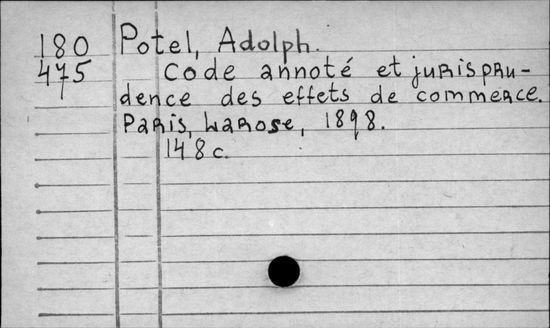 180 Potel, Adolph.
475 Code annoté et jurispru-
dence des effets de commerce.
Paris, Larose, 1898.
148 c.